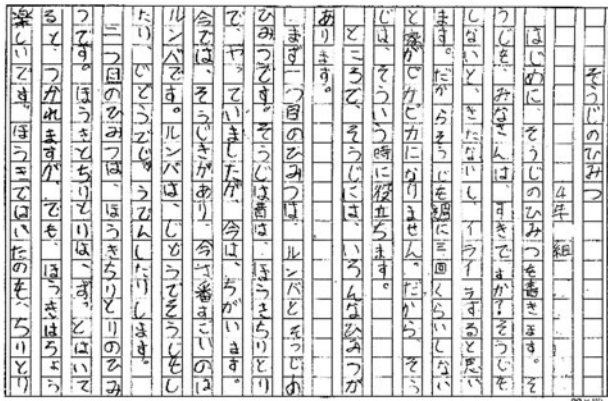 そうじのひみつ
4年 組
はじめに、そうじのひみつを書きます。そ
うじを、みなさんは、すきですか?そうじを
しないと、きたないし、イライラすると思い
ます。だからそうじを週に三回くらいしない
と家がピカピカになりません。だから、そう
じは、そういう時に役立ちます。
ところで、そうじには、いろんなひみつが
あります。
まず一つ目のひみつは、ルンバとそうじの
ひみつです。そうじは昔は、ほうきちりとり
で、やっていましたが、今は、ちがいます。
今では、そうじきがあり、今一番すごいのは
ルンバです。ルンバは、じどうでそうじをし
たり、じどうでじゅうでんしたりします。
二つ目のひみつは、ほうきちりとりのひみ
つです。ほうきとちりとりは、ずっとはいて
ると、つかれますが、でも、ほうきはちょう
楽しいです。ほうきではいたのを、ちりとり